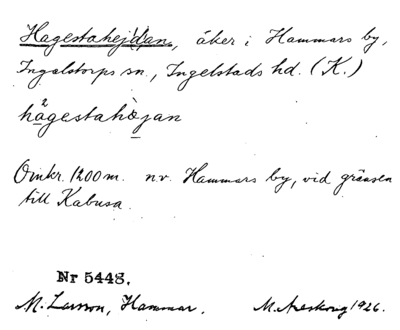 Hagestahejdan, åker i Hammars by,
Ingelstorps sn., Ingelstads hd. (K.)
hagestahæjan
Omkr. 1200 m. n.v. Hammars by, vid gränsen
till Kabusa.
Nr 5448.
M. Larsson, Hammar. M. Areskoug 1926.